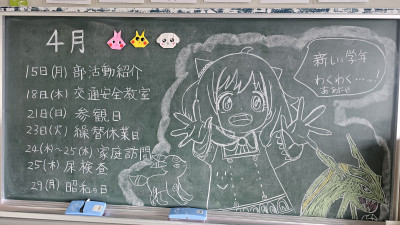 4月
15日(月) 部活動紹介
18日(木) 交通安全教室
21日(日) 参観日
23日(火) 繰替休業日
24(水)〜25(木) 家庭訪問
25(木) 尿検査
29(月) 昭和の日
新しい学年
わくわく…っ!